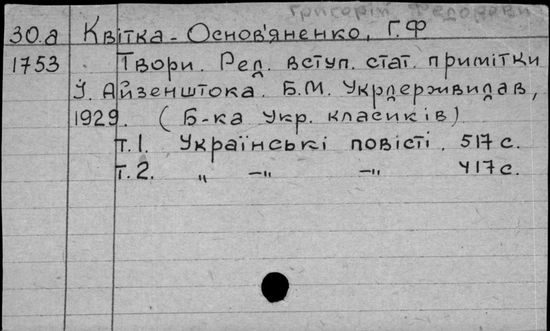 Григорій Федорови
30.а Квітка-Основ'яненко, Г.Ф
1753 Твори. Ред. вступ. стат. примітки
І. Айзенштока. Б.М. Укрдержвидав,
1929. (Б-ка Укр. класиків)
т.1. Українські повісті. 517 с.
т.2. „ –„ –„ 417 с.